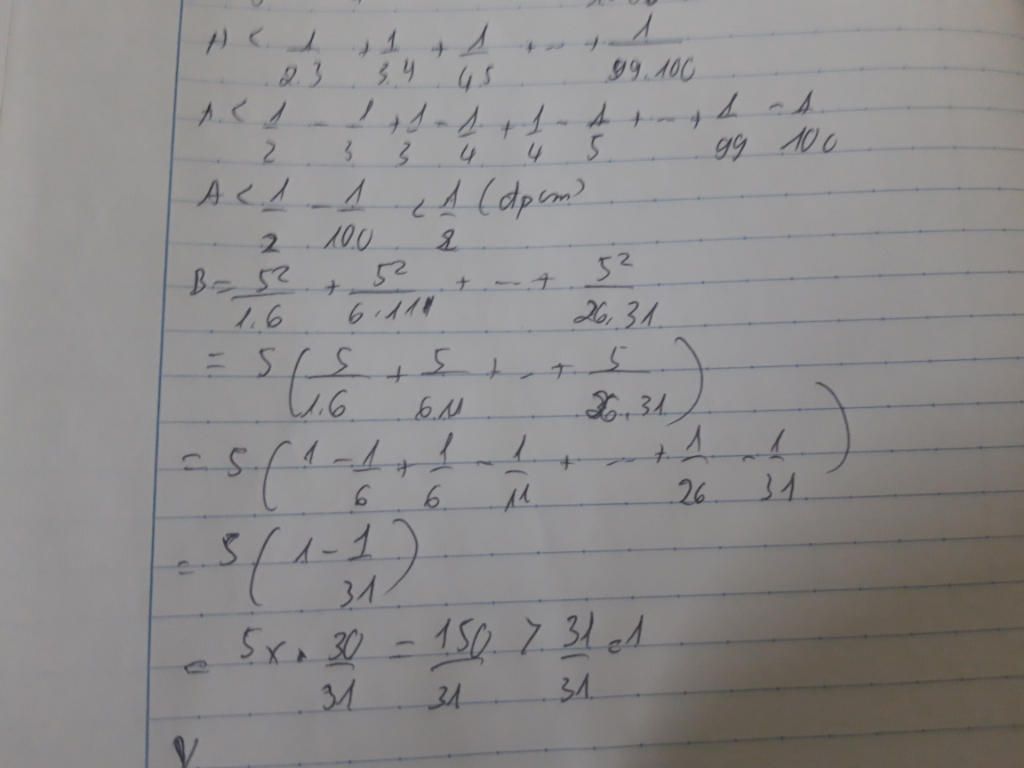 A < 1/2.3 + 1/3.4 + 1/4.5 + ... + 1/99.100
A < 1/2 - 1/3 + 1/3 - 1/4 + 1/4 - 1/5 + ... + 1/99 - 1/100
A < 1/2 - 1/100 < 1/2 (đpcm)
B = 5²/1.6 + 5²/6.11 + ... + 5²/26.31
= 5 (5/1.6 + 5/6.11 + ... + 5/26.31)
= 5 (1 - 1/6 + 1/6 - 1/11 + ... + 1/26 - 1/31)
= 5 (1 - 1/31)
= 5 x . 30/31 = 150/31 > 31/31 = 1
V